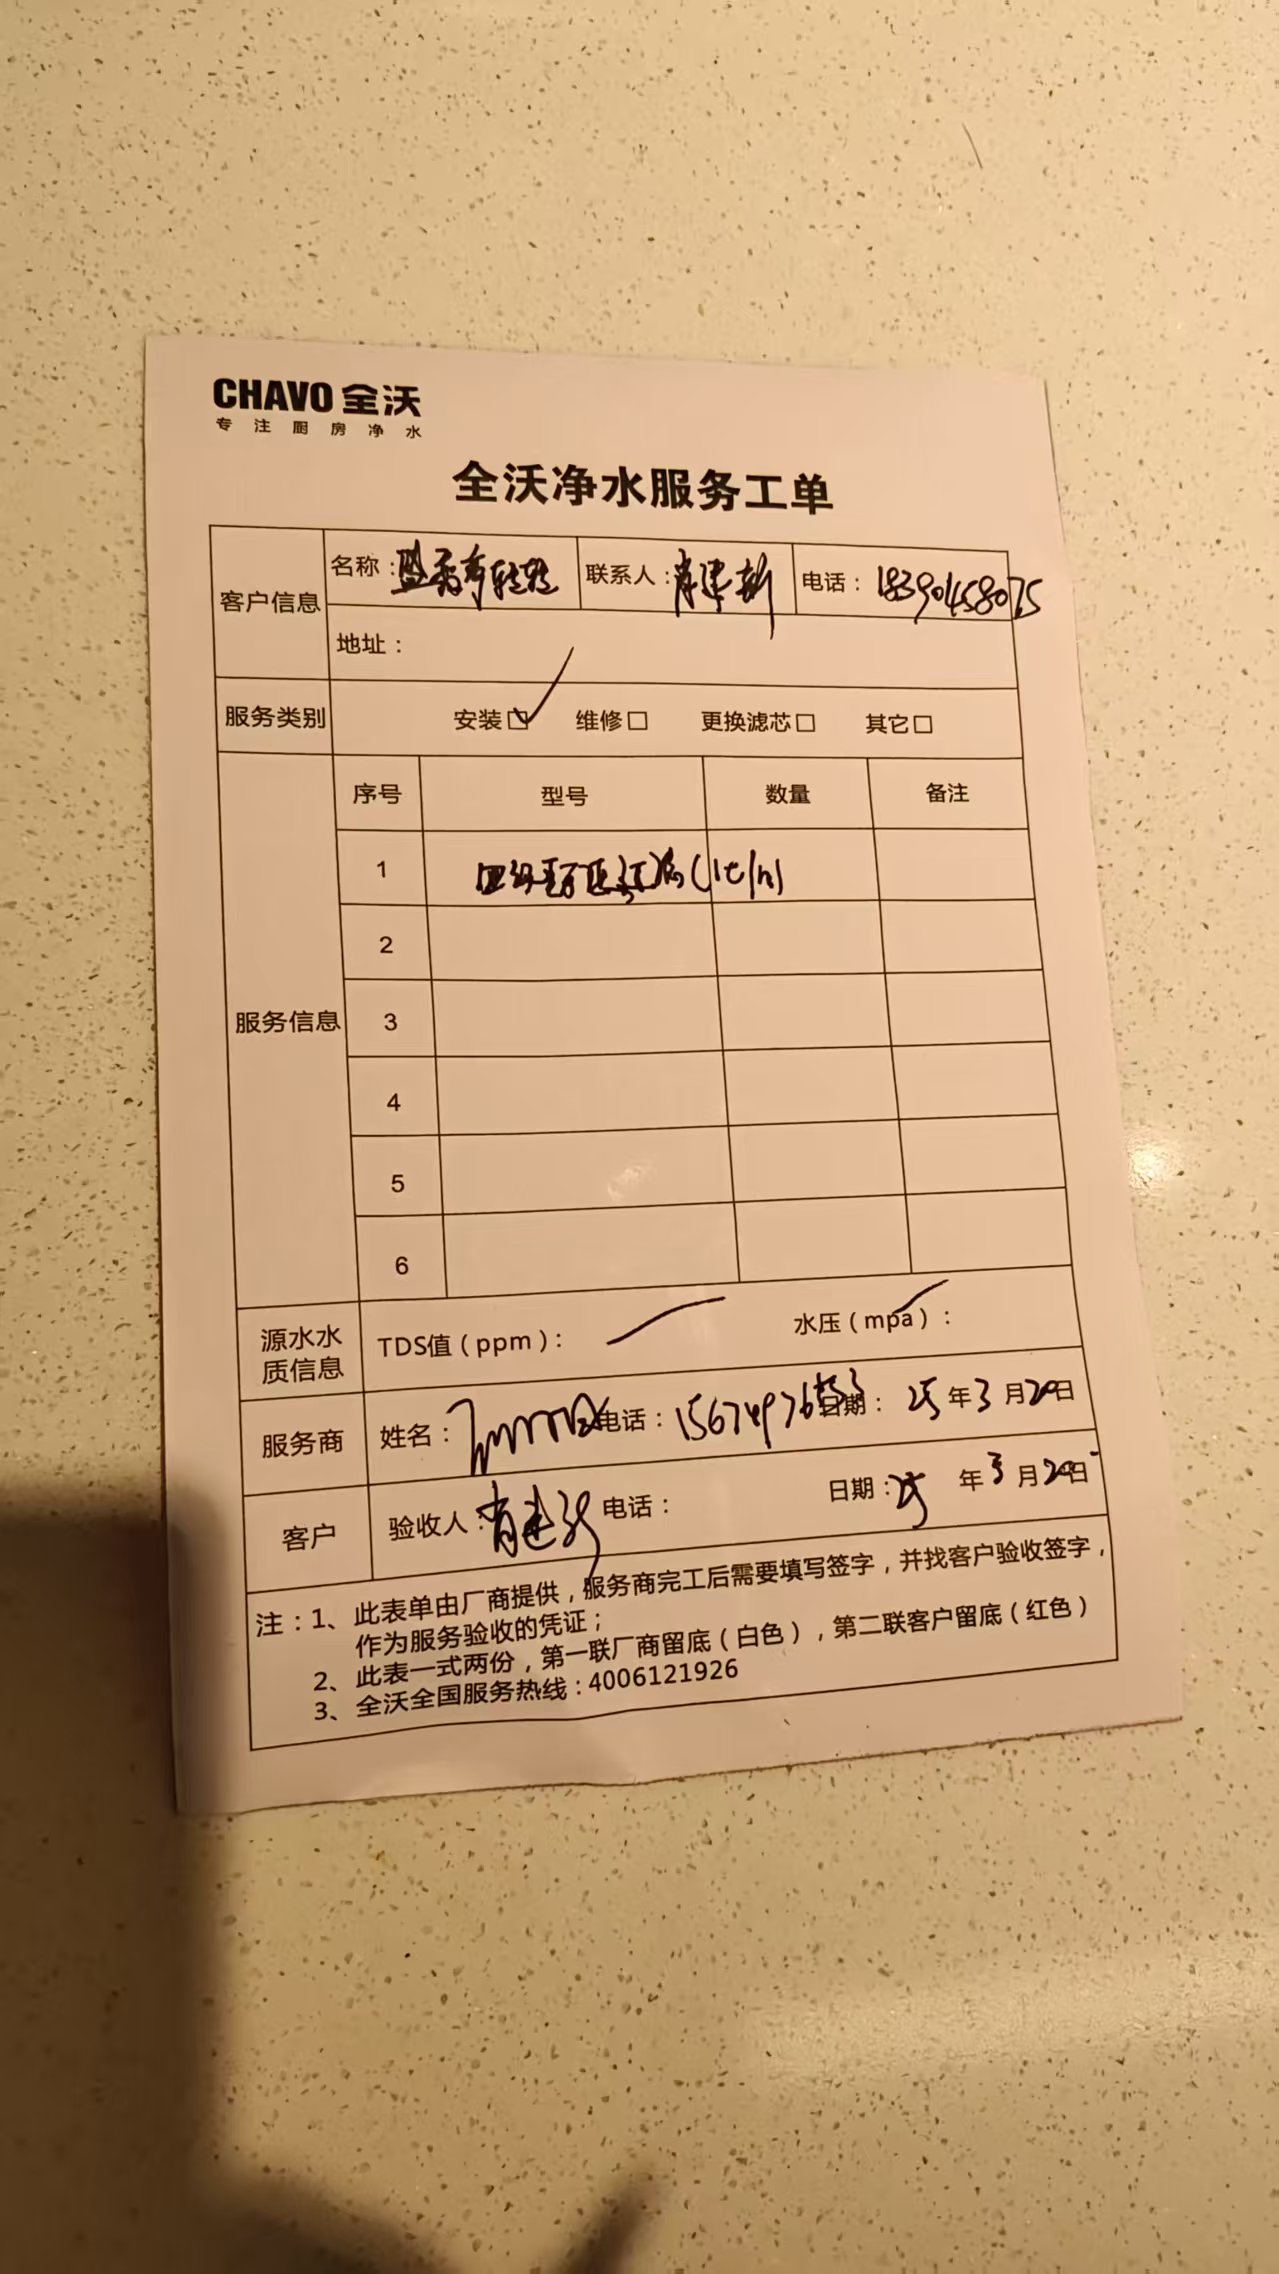 CHAVO 全沃
专注厨房净水
全沃净水服务工单
客户信息 名称: 联系人:肖建新 电话:18390458075
地址:
服务类别 安装☑ 维修☐ 更换滤芯☐ 其它☐
服务信息 序号 型号 数量 备注
1 (1t/h)
2
3
4
5
6
源水水质信息 TDS值(ppm): 水压(mpa):
服务商 姓名: 电话: 日期:25年3月20日
客户 验收人:肖建新 电话: 日期:25年3月20日
注:1、此表单由厂商提供,服务商完工后需要填写签字,并找客户验收签字,
作为服务验收的凭证;
2、此表一式两份,第一联厂商留底(白色),第二联客户留底(红色)
3、全沃全国服务热线:4006121926